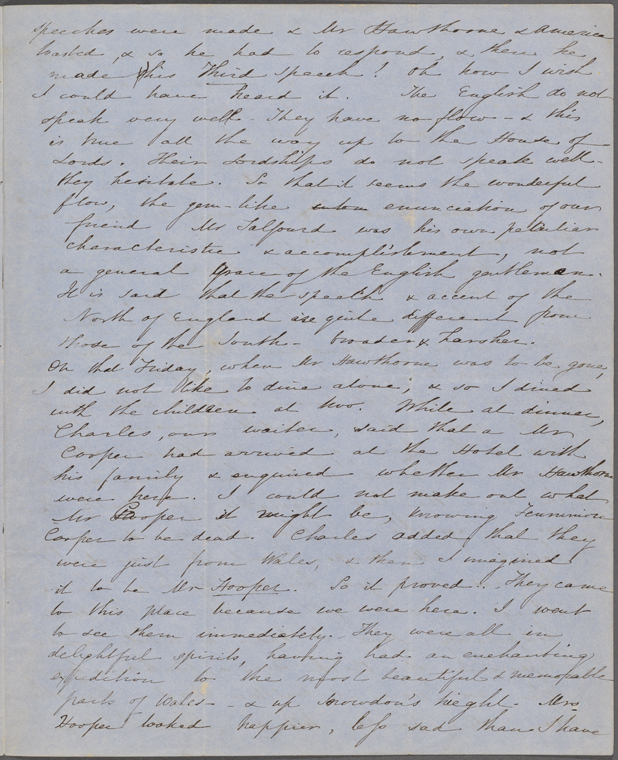 speeches were made & Mr Hawthorne & America
toasted, & so he had to respond, & then he
made his Third speech! Oh how I wish
I could have heard it. The English do not
speak very well - They have no flow - & this
is true all the way up to the House of
Lords. Their Lordships do not speak well -
they hesitate. So that it seems the wonderful
flow, the gem-like enunciation of our
friend Mr Talfourd was his own peculiar
characteristic & accomplishment, not
a general grace of the English gentleman.
It is said that the speech & accent of the
North of England are quite different from
those of the South - broader & harsher.
On that Friday, when Mr Hawthorne was to be gone,
I did not like to dine alone, & so I dined
with the children at two. While at dinner,
Charles, our waiter, said that a Mr
Cooper had arrived at the Hotel with
his family & enquired whether Mr Hawthorne
were here. I could not make out what
Mr Cooper it might be, knowing Fennimore
Cooper to be dead. Charles added that they
were just from Wales, & then I imagined
it to be Mr Hooper. So it proved. They came
to this place because we were here. I went
to see them immediately. They were all in
delightful spirits, having had an enchanting
expedition to the most beautiful & memorable
parts of Wales - & up Snowdon's height. Mrs
Hooper looked happier, less sad than I have